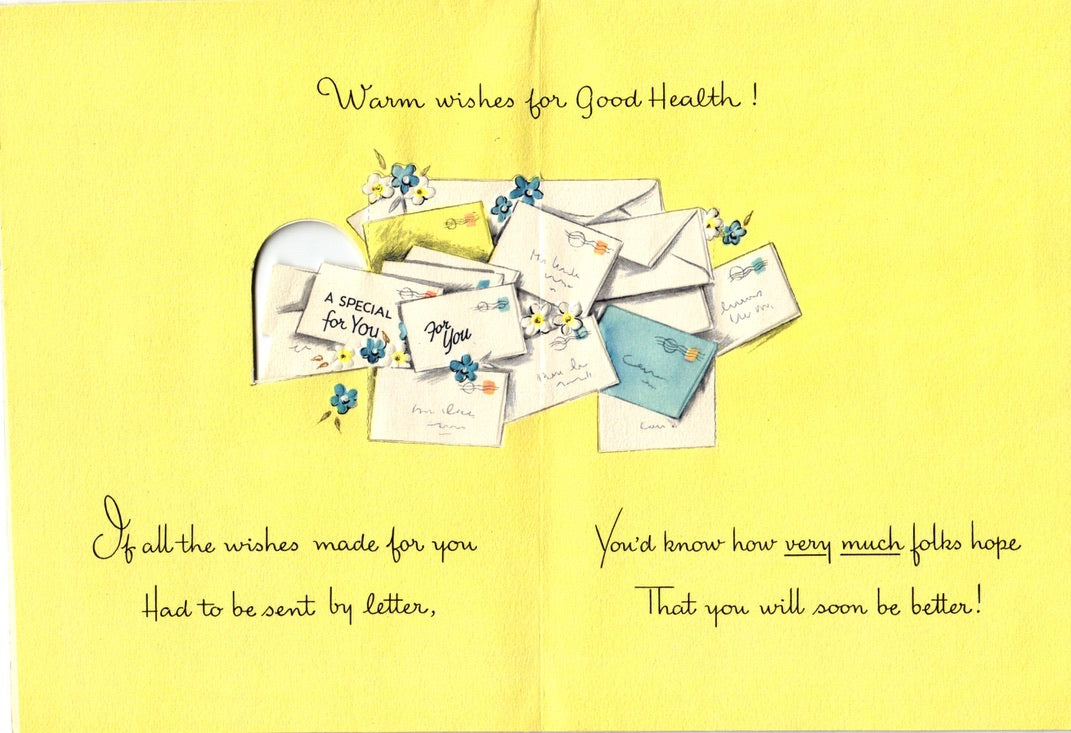 Warm wishes for Good Health!
A SPECIAL
for You
For
You
If all the wishes made for you
Had to be sent by letter,
You'd know how very much folks hope
That you will soon be better!